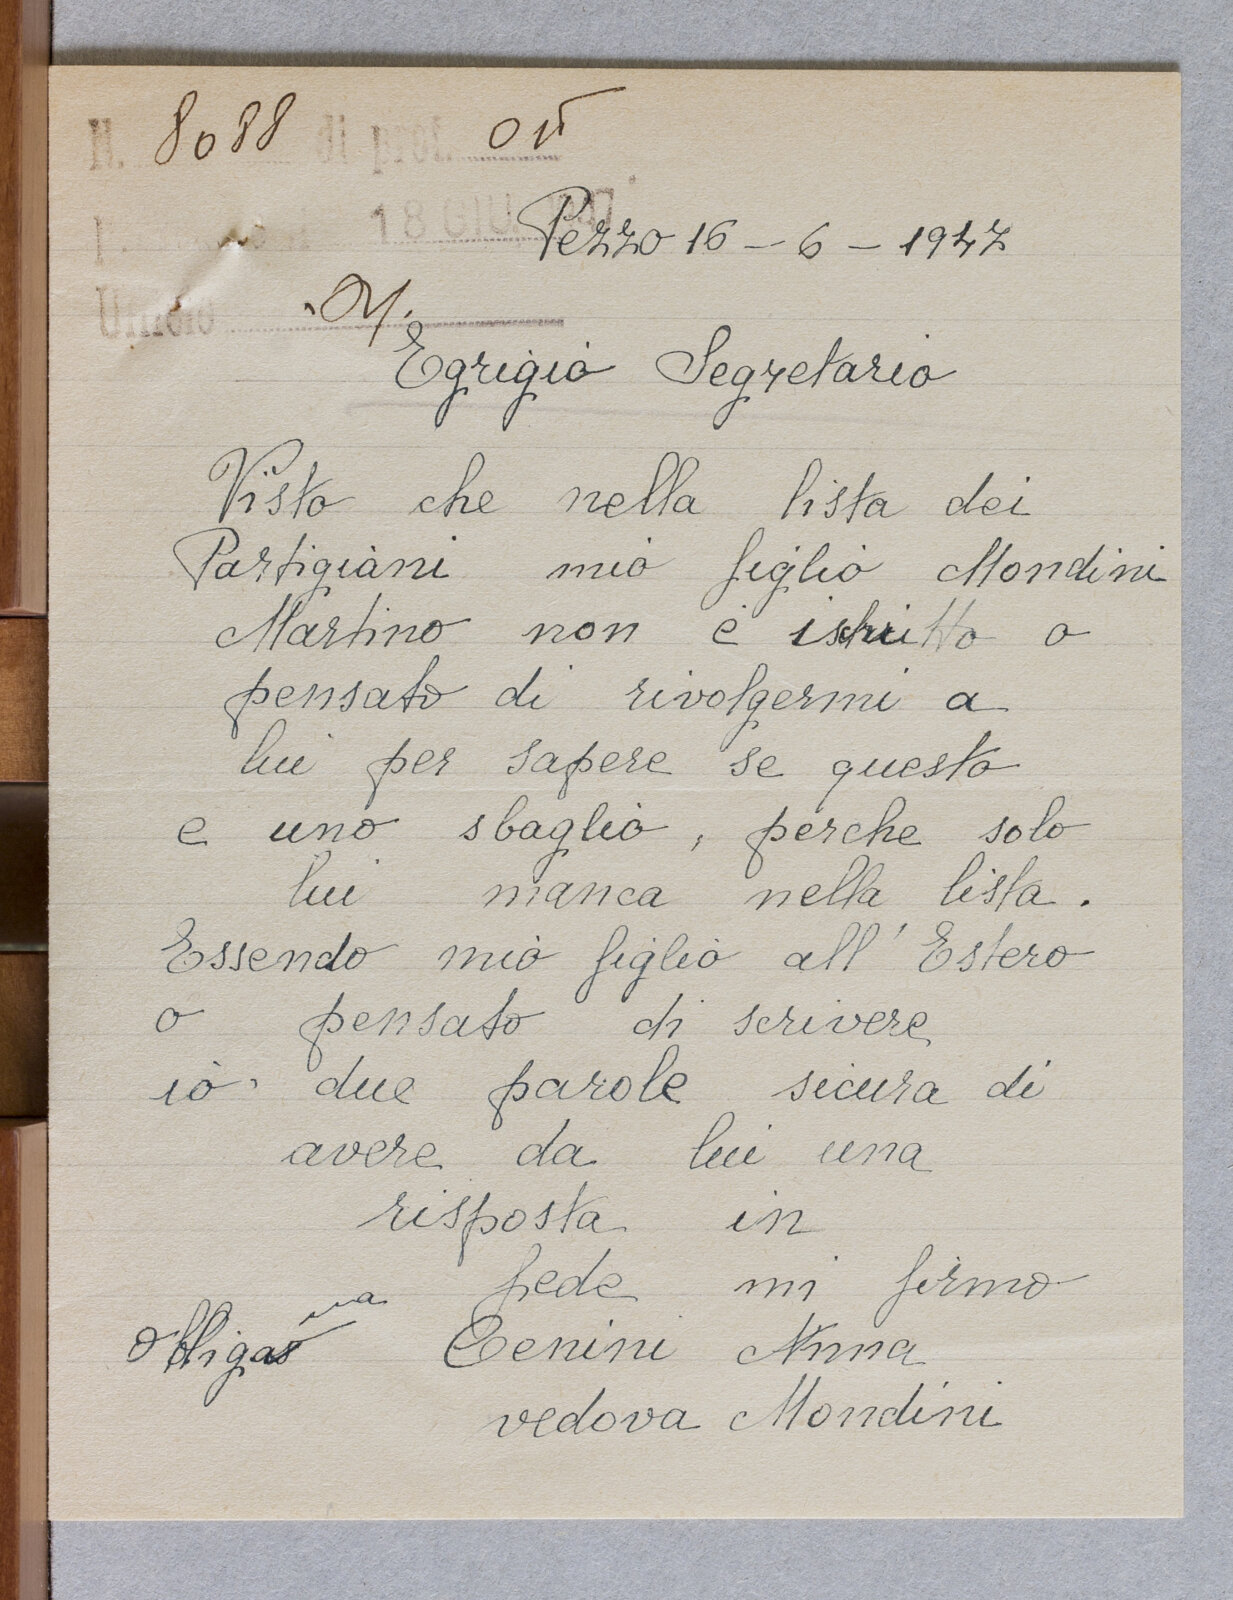 N. 8088 di prot.
18 GIU. 1947
Pezzo 16 - 6 - 1947
Ufficio
Egrigio Segretario
Visto che nella lista dei
Partigiani mio figlio Mondini
Martino non e ischritto o
pensato di rivolgermi a
lui per sapere se questo
e uno sbaglio, perche solo
lui manca nella lista.
Essendo mio figlio all' Estero
o pensato di scrivere
io due parole sicura di
avere da lui una
risposta in
fede mi firmo
Cenini Anna
vedova Mondini